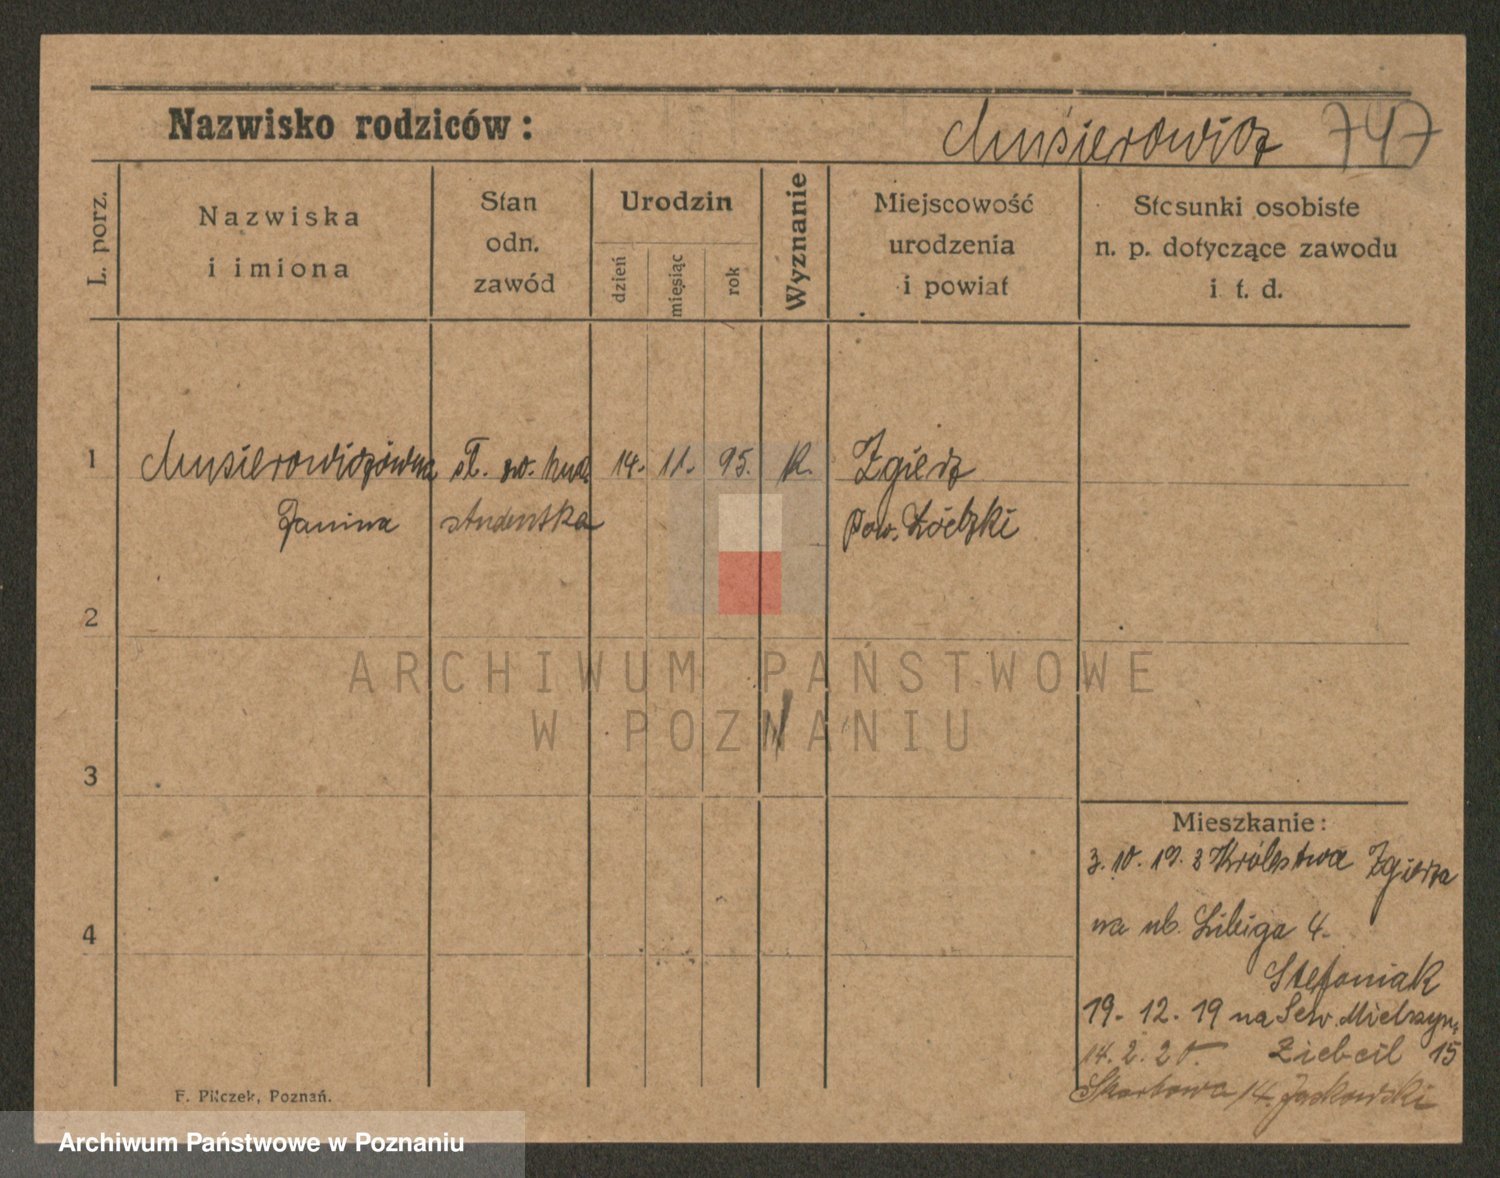 Nazwisko rodziców: Musierowicz 747
L. porz.
Nazwiska
i imiona
Stan
odn.
zawód
Urodzin
dzień
miesiąc
rok
Wyznanie
Miejscowość
urodzenia
i powiat
Stosunki osobiste
n. p. dotyczące zawodu
i t. d.
1 Musierowiczówna st. 14. 11. 95. k. Zgierz
Janina studentka pow. Łódzki
2
3
4
Mieszkanie:
3. 10. 19. z Królestwa Zgierza
na ul. Libiga 4.
Stefaniak
19. 12. 19 na Sew. Mielżyń.
14. 2. 20. 15
Skarbowa 14. Jaskowski
F. Pilczek, Poznań.
ARCHIWUM PAŃSTWOWE
W POZNANIU
Archiwum Państwowe w Poznaniu